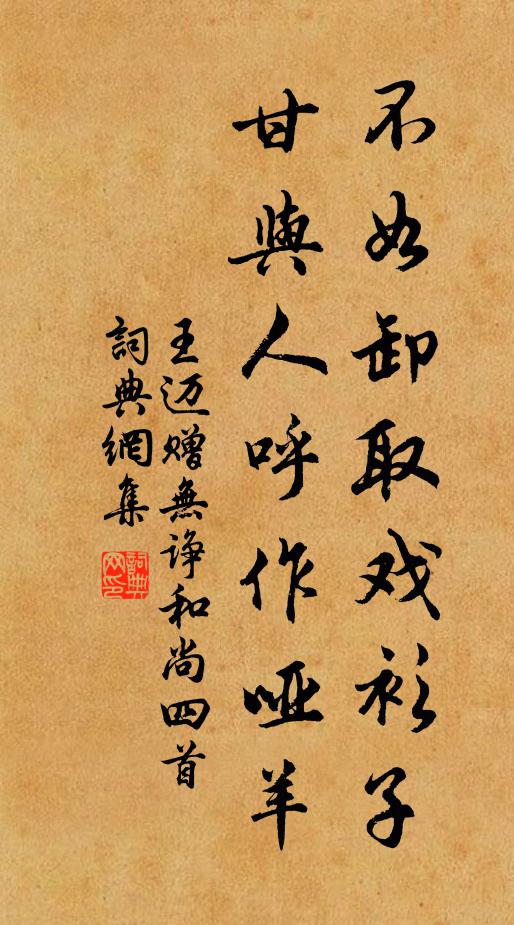 不如卸取戏衫子
甘與人呼作哑羊
王迈赠無诤和尚四首
詞典網集
詞典網印